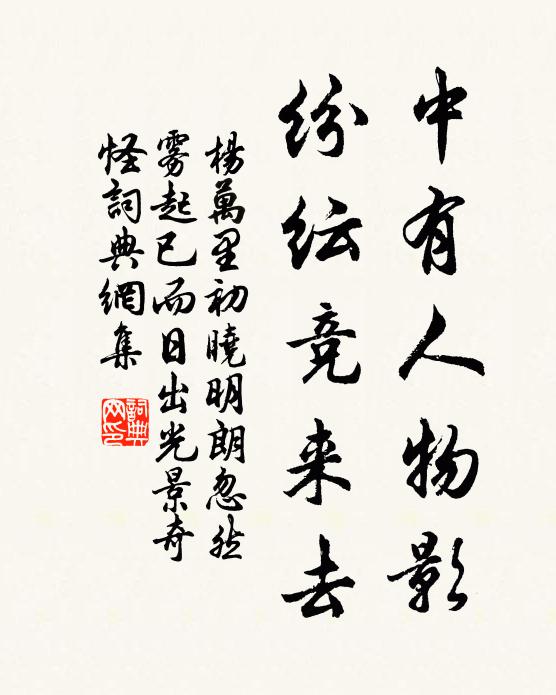 中有人物影
纷纭竞来去
楊萬里初曉明朗忽然
雾起已而日出光景奇
怪詞典網集
詞典
网印